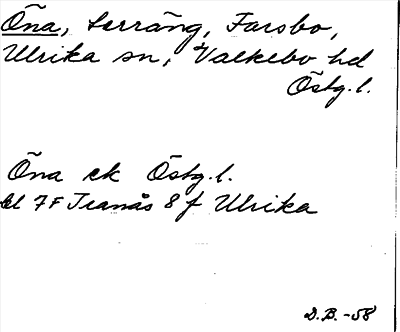 Öna, Sörräng, Farsbo,
Ulrika sn, Valkebo hd
Östg. l.
Öna ek Östg. l.
bl 7F Tranås 8 f Ulrika
D.B. -58